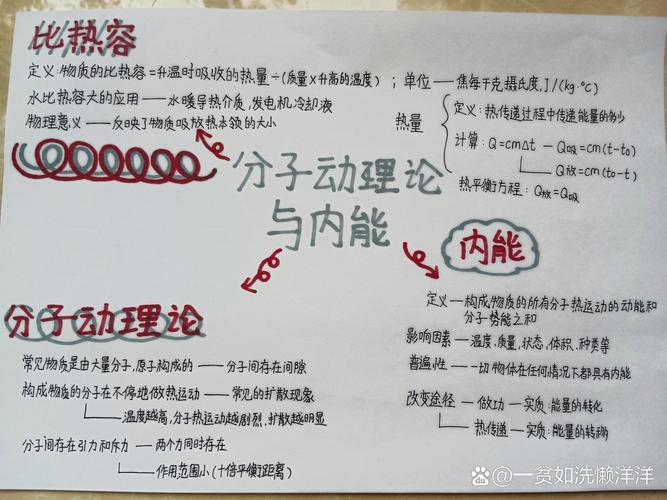 比热容
定义:物质的比热容=升温时吸收的热量÷(质量×升高的温度);单位——焦每千克摄氏度,J/(kg·℃)
水比热容大的应用——水暖导热介质,发电机冷却液
物理意义——反映了物质吸放热本领的大小
热量
定义:热传递过程中传递能量的多少
计算:Q=cmΔt—Q吸=cm(t-t0)
Q放=cm(t0-t)
热平衡方程:Q放=Q吸
分子动理论
与内能
内能
定义—构成物质的所有分子热运动的动能和
分子势能之和
影响因素—温度、质量、状态、体积、种类等
普遍性——一切物体在任何情况下都具有内能
改变途径—做功—实质:能量的转化
热传递—实质:能量的转移
分子动理论
常见物质是由大量分子,原子构成的——分子间存在间隙
构成物质的分子在不停地做热运动——常见的扩散现象
温度越高,分子热运动越剧烈,扩散越明显
分子间存在引力和斥力—两个力同时存在
作用范围小(十倍平衡距离)
@一贫如洗懒洋洋